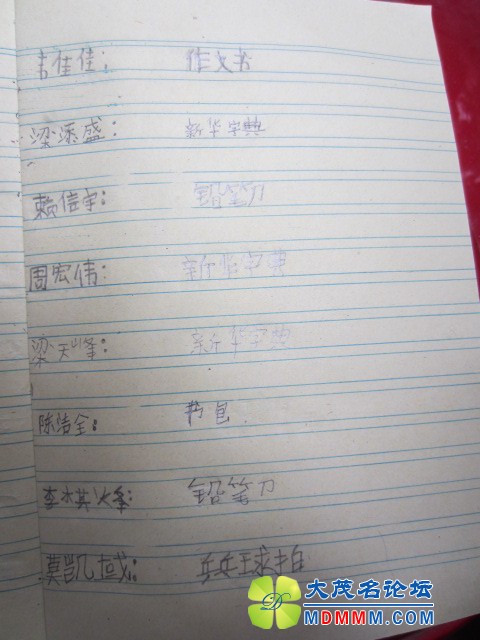 韦佳佳: 作文书
梁添盛: 新华字典
赖信宇: 铅笔刀
周宏伟: 新华字典
梁天峰: 新华字典
陈洁全: 书包.
李烽: 铅笔刀
莫凯域: 乒乓球拍
大茂名论坛
MDMMM.COM